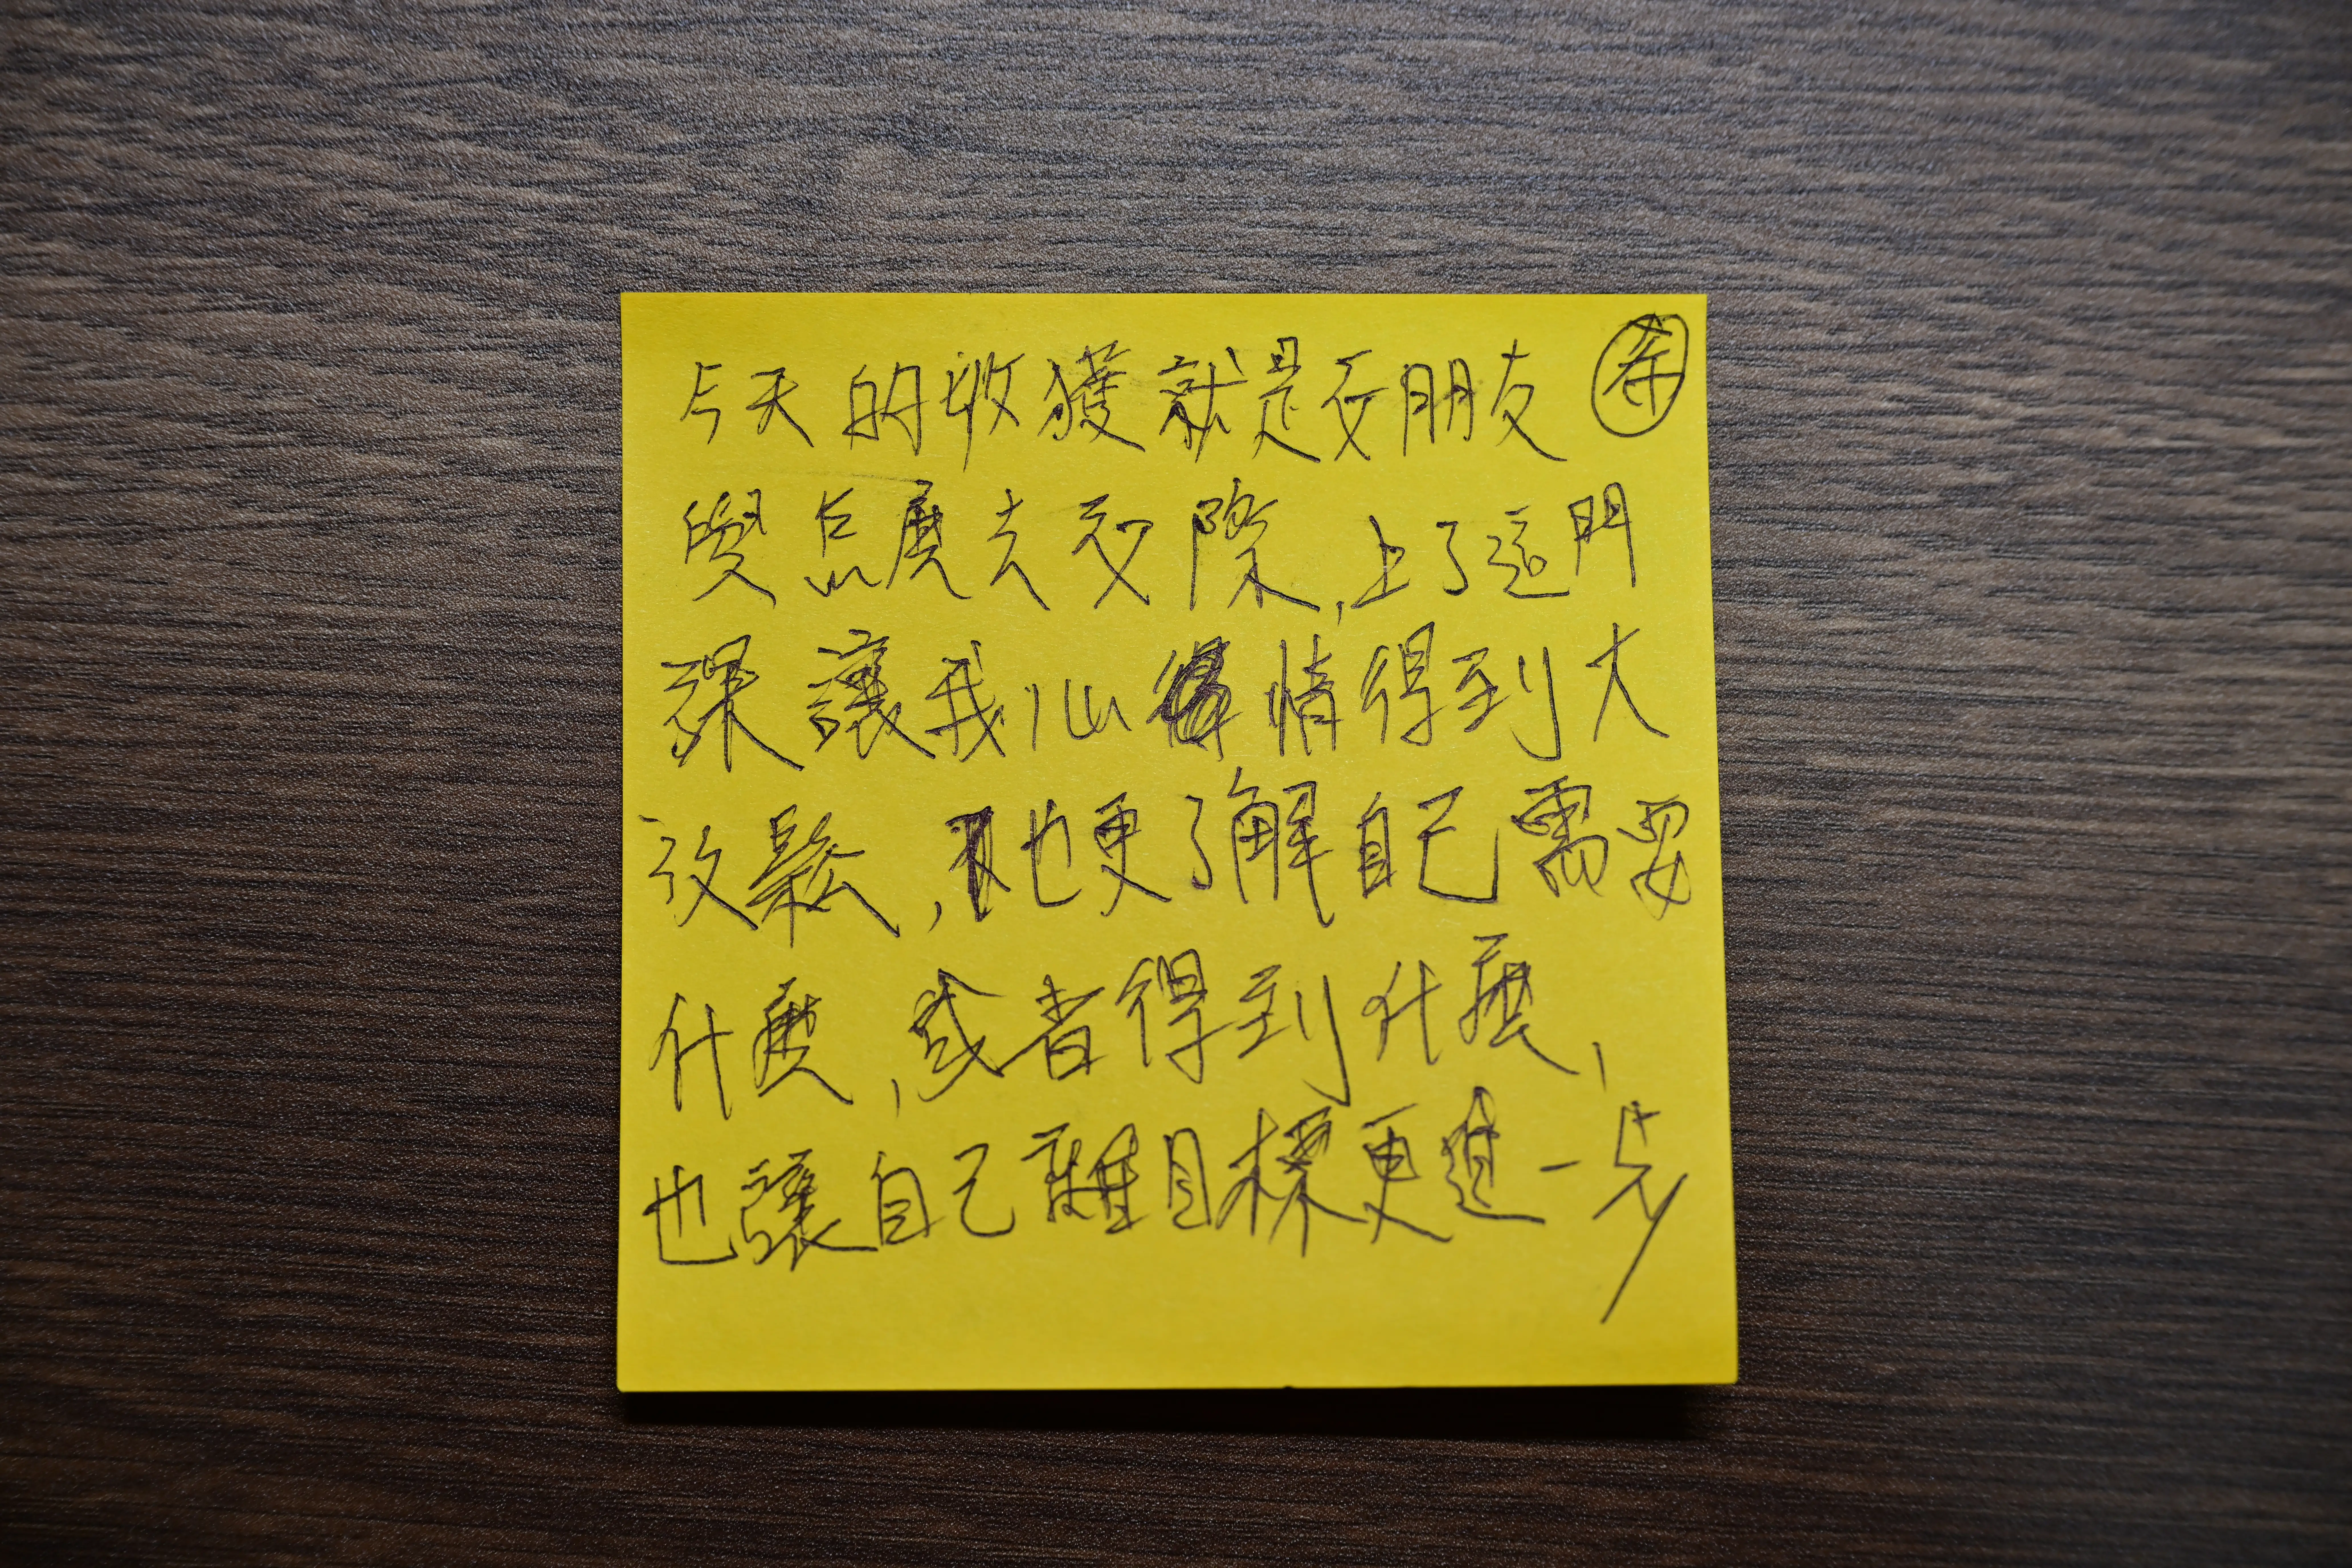 今天的收獲就是交朋友 希
要怎麼去交際,上了這門
課讓我心情得到大
放鬆,也更了解自己需要
什麼,或者得到什麼,
也讓自己離目標更進一步